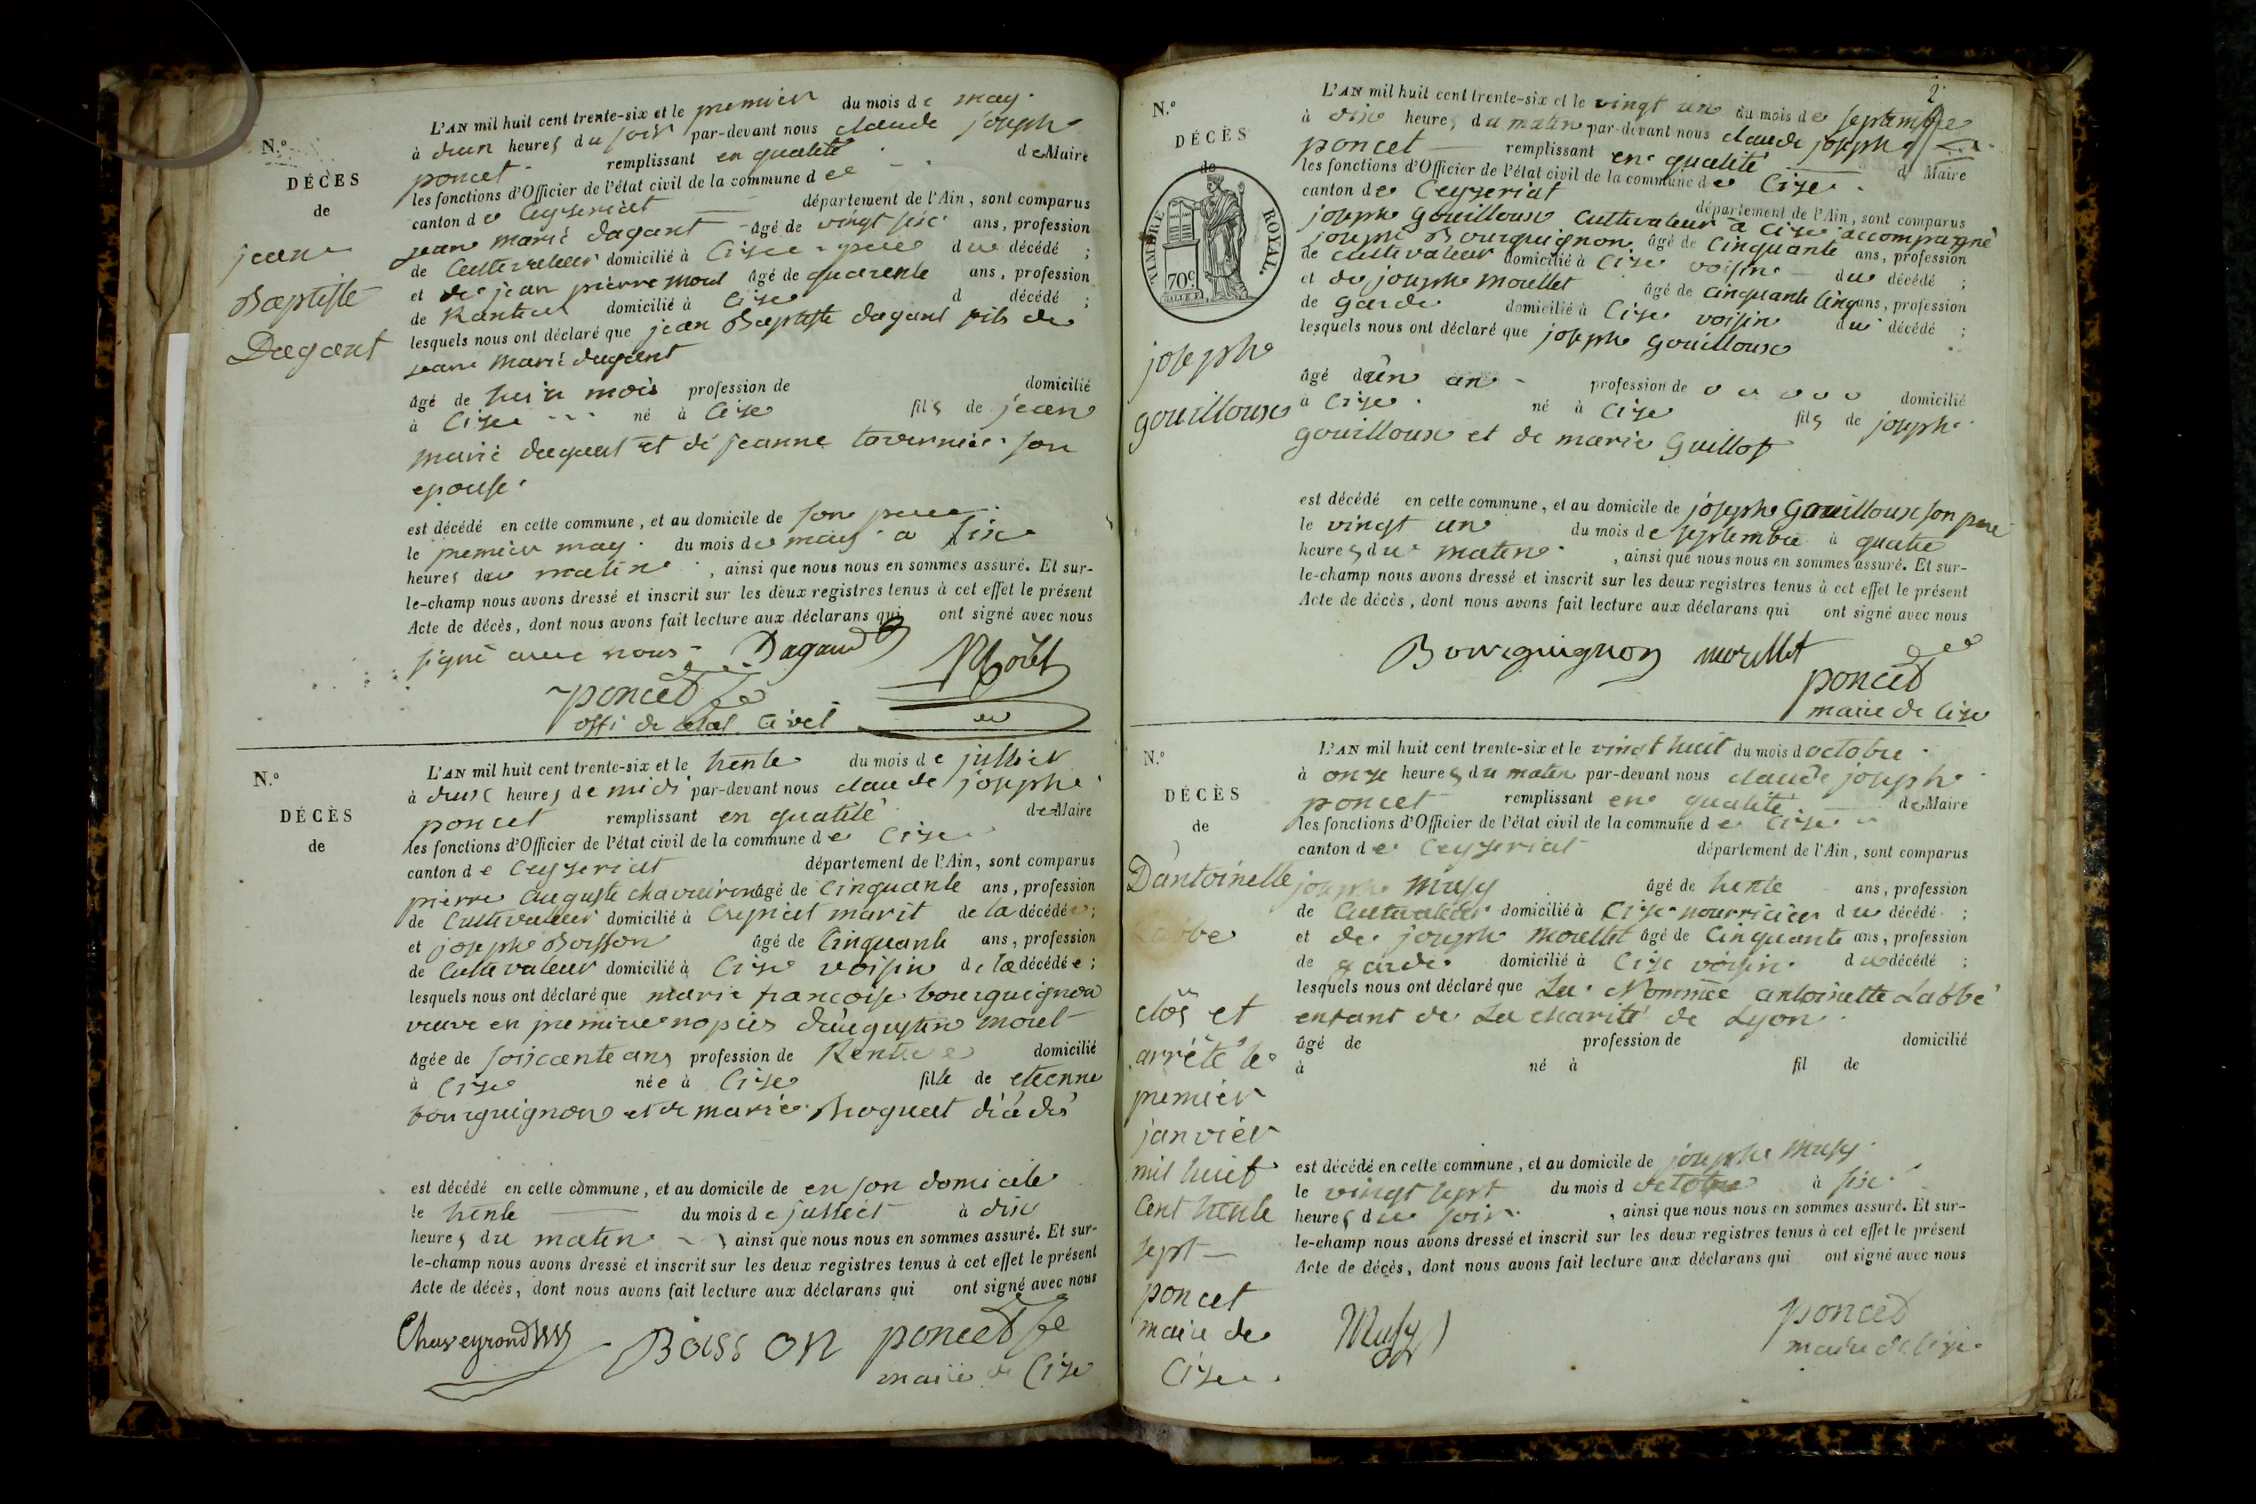 N.º
DÉCÈS
de
jean
Baptiste
Dagant
L'AN mil huit cent trente-six et le premier du mois de may
à deux heures du soir par-devant nous claude joseph
poncet remplissant en qualité de Maire
les fonctions d'Officier de l'état civil de la commune de
canton de Ceyzeriat département de l'Ain, sont comparus
jean marie dagant âgé de vingt six ans, profession
de Cultivateur domicilié à Cize père du décédé ;
et de jean pierre morel âgé de quarente ans, profession
de Rantier domicilié à Cize d décédé ;
lesquels nous ont déclaré que jean Baptiste dagant fils de
jean marie dagant
âgé de huit mois profession de domicilié
à Cize né à Cize fils de jean
marie dagant et de jeanne tavernier son
epouse
est décédé en cette commune, et au domicile de son pere
le premier may du mois de may a six
heures du matin, ainsi que nous nous en sommes assuré. Et sur-
le-champ nous avons dressé et inscrit sur les deux registres tenus à cet effet le présent
Acte de décès, dont nous avons fait lecture aux déclarans qui ont signé avec nous
signé avec nous Dagand
poncet
offi de letat civil
N.º
DÉCÈS
de
L'AN mil huit cent trente-six et le trente du mois de julliet
à deux heures de midi par-devant nous claude joseph
poncet remplissant en qualité de Maire
les fonctions d'Officier de l'état civil de la commune de Cize
canton de Ceyzeriat département de l'Ain, sont comparus
pierre auguste âgé de Cinquante ans, profession
de Cultivateur domicilié à marit de la décédée ;
et joseph Boisson âgé de Cinquante ans, profession
de Cultivateur domicilié à Cize voisin de la décédée ;
lesquels nous ont déclaré que marie francoise bourguignon
veuve en premiere nopces d'augustin morel
âgée de soixante ans profession de Rentiere domicilié
à Cize née à Cize fille de etienne
bourguignon et de marie décédés
est décédé en cette commune, et au domicile de en son domicile
le trente du mois de julliet à dix
heures du matin ainsi que nous nous en sommes assuré. Et sur-
le-champ nous avons dressé et inscrit sur les deux registres tenus à cet effet le présent
Acte de décès, dont nous avons fait lecture aux déclarans qui ont signé avec nous
Chaveyrond Boisson poncet
maire de Cize
2
N.º
DÉCÈS
de
TIMBRE ROYAL.
70c
joseph
gouilloux
L'AN mil huit cent trente-six et le vingt un du mois de septembre
à dix heures du matin par-devant nous claude joseph
poncet remplissant en qualité de Maire
les fonctions d'Officier de l'état civil de la commune de Cize
canton de Ceyzeriat département de l'Ain, sont comparus
joseph gouilloux Cultivateur à Cize accompagné
joseph Bourguignon âgé de Cinquante ans, profession
de Cultivateur domicilié à Cize voisin du décédé ;
et de joseph moellet âgé de Cinquante Cinq ans, profession
de garde domicilié à Cize voisin du décédé ;
lesquels nous ont déclaré que joseph gouilloux
âgé d'un an profession de domicilié
à Cize né à Cize fils de joseph
gouilloux et de marie guillot
est décédé en cette commune, et au domicile de joseph gouilloux son pere
le vingt un du mois de septembre à quatre
heures du matin, ainsi que nous nous en sommes assuré. Et sur-
le-champ nous avons dressé et inscrit sur les deux registres tenus à cet effet le présent
Acte de décès, dont nous avons fait lecture aux déclarans qui ont signé avec nous
Bourguignon morellet
poncet
maire de Cize
N.º
DÉCÈS
de
D'antoinette
Labbe
clos et
arrêté le
premier
janvier
mil huit
cent trente
sept
poncet
maire de
Cize
L'AN mil huit cent trente-six et le vingt huit du mois d octobre
à onze heures du matin par-devant nous claude joseph
poncet remplissant en qualité de Maire
les fonctions d'Officier de l'état civil de la commune de Cize
canton de Ceyzeriat département de l'Ain, sont comparus
joseph musy âgé de trente ans, profession
de Cultivateur domicilié à Cize nourricier du décédé ;
et de joseph moellet âgé de Cinquante ans, profession
de garde domicilié à Cize voisin du décédé ;
lesquels nous ont déclaré que La Nommée antoinette Labbé
enfant de La charité de Lyon
âgé de profession de domicilié
à né à fil de
est décédé en cette commune, et au domicile de joseph musy
le vingt sept du mois d octobre à six
heures du soir, ainsi que nous nous en sommes assuré. Et sur-
le-champ nous avons dressé et inscrit sur les deux registres tenus à cet effet le présent
Acte de décès, dont nous avons fait lecture aux déclarans qui ont signé avec nous
Musy poncet
maire de Cize